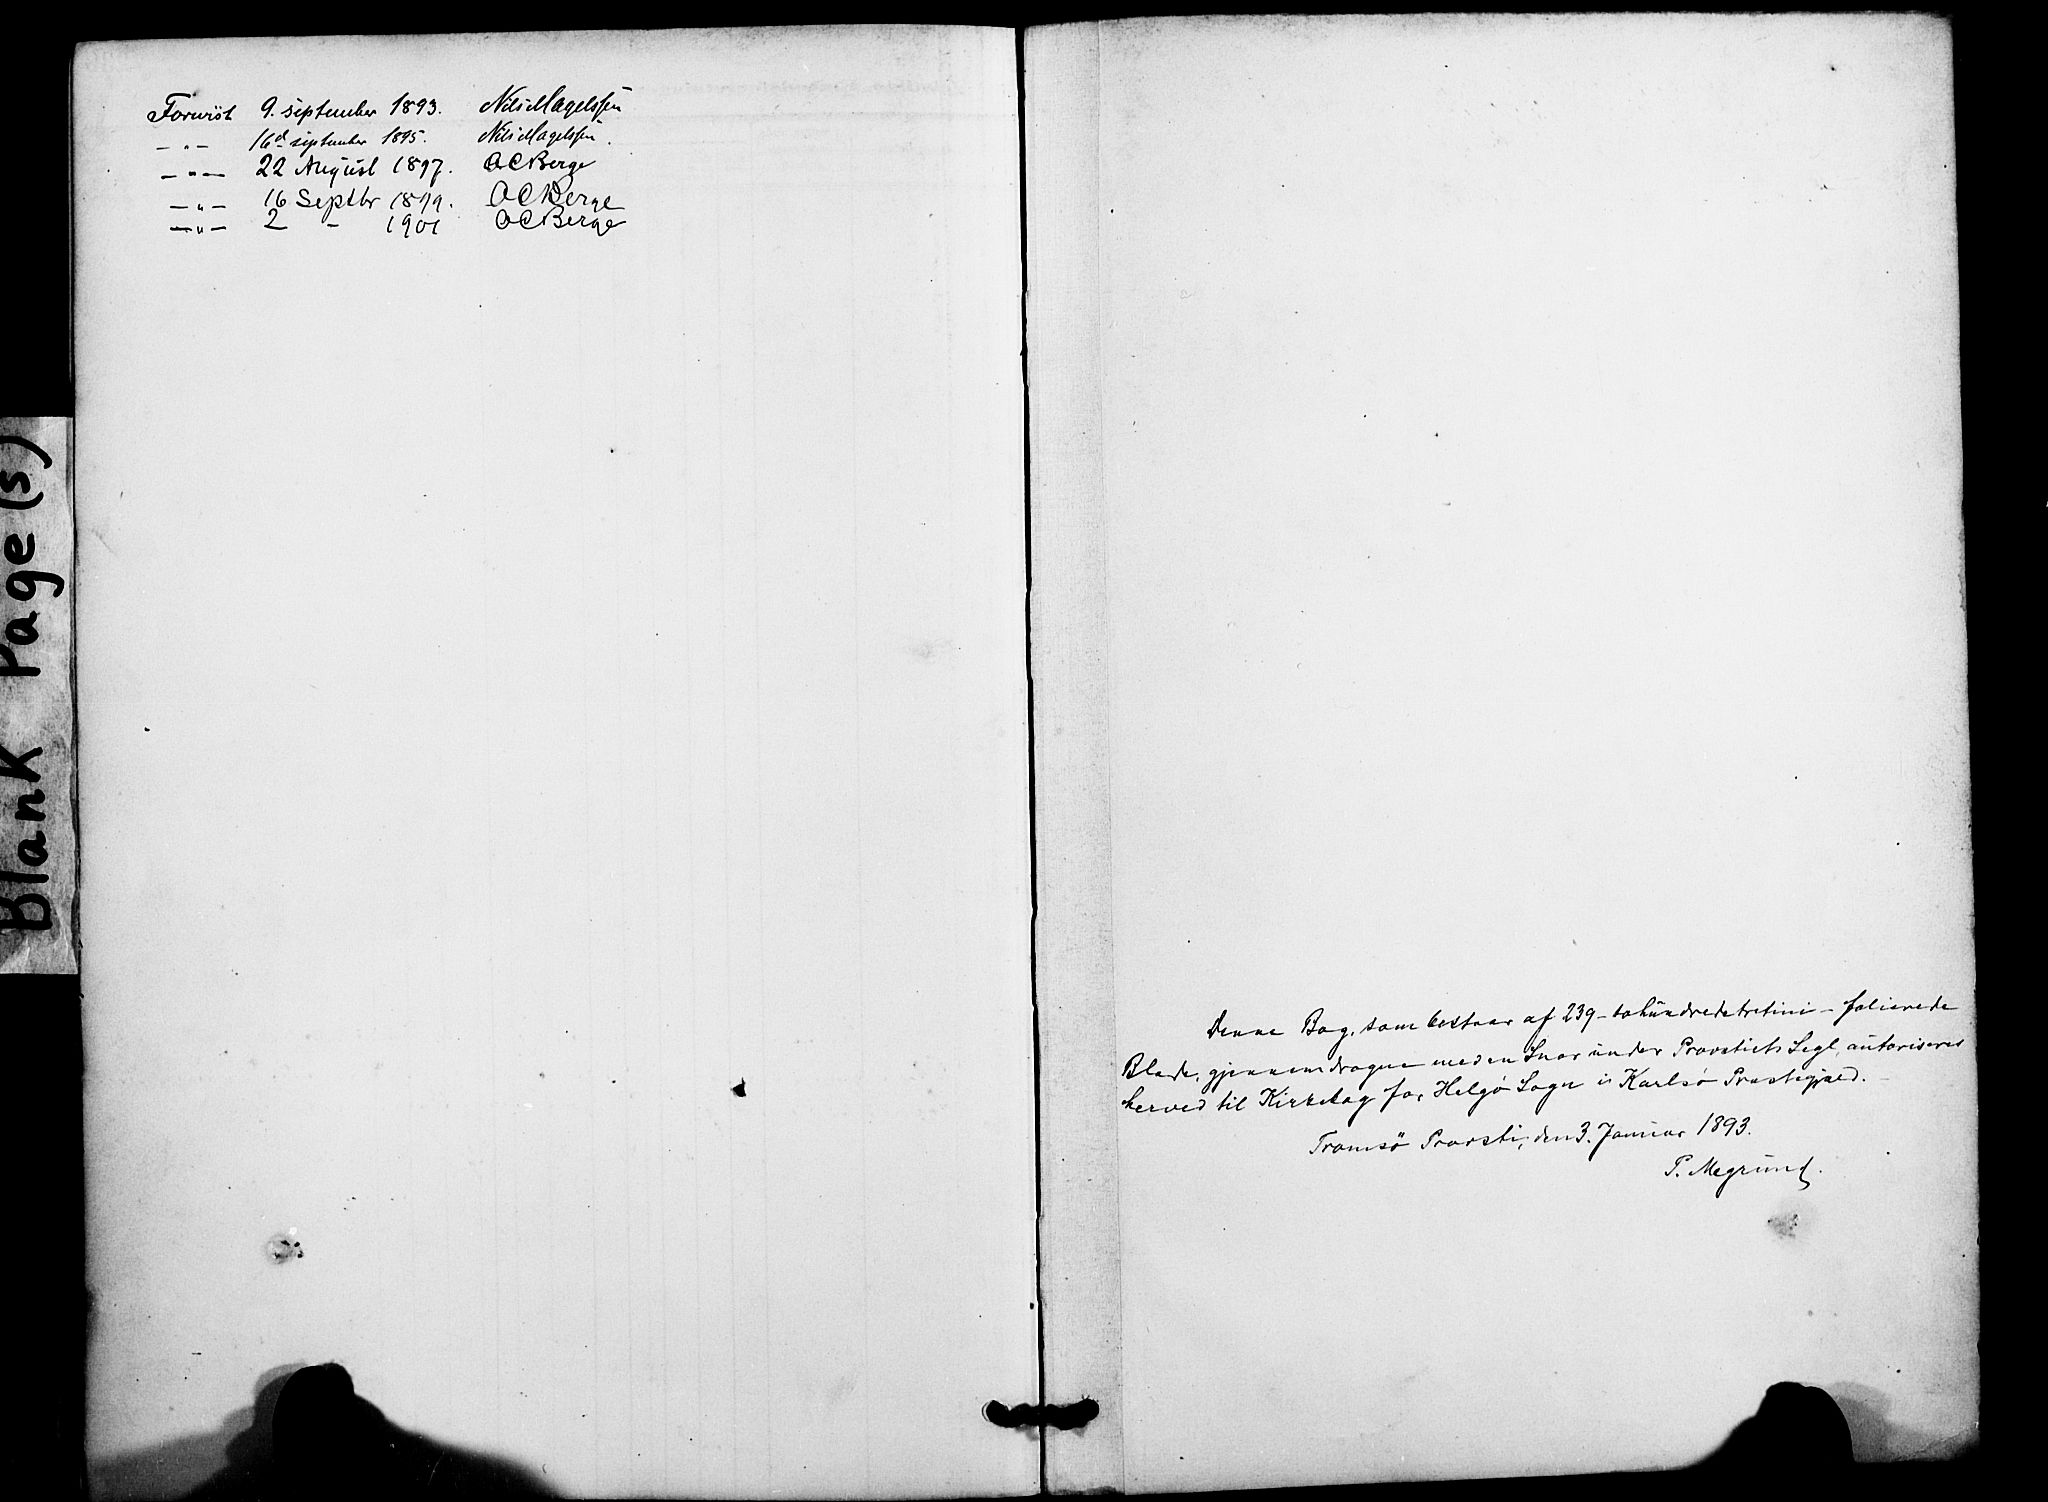 Forevist 9. september 1893. Nils Magelssen
— " — 16d september 1895. Nils Magelssen.
— " — 22 August 1897. O C Berge
— " — 16 Septbr 1899. O C Berge
— " — 2 — 1901 O C Berge
Blank Page(s)
Denne Bog, som bestaar af 239 - tohundredetretini - folierede
Blade, gjennemdragne med en Snor under Provstiets Segl, autoriseres
herved til Kirkebog for Helgø Sogn i Karlsø Præstegjæld. —
Tromsö Provsti, den 3. Januar 1893.